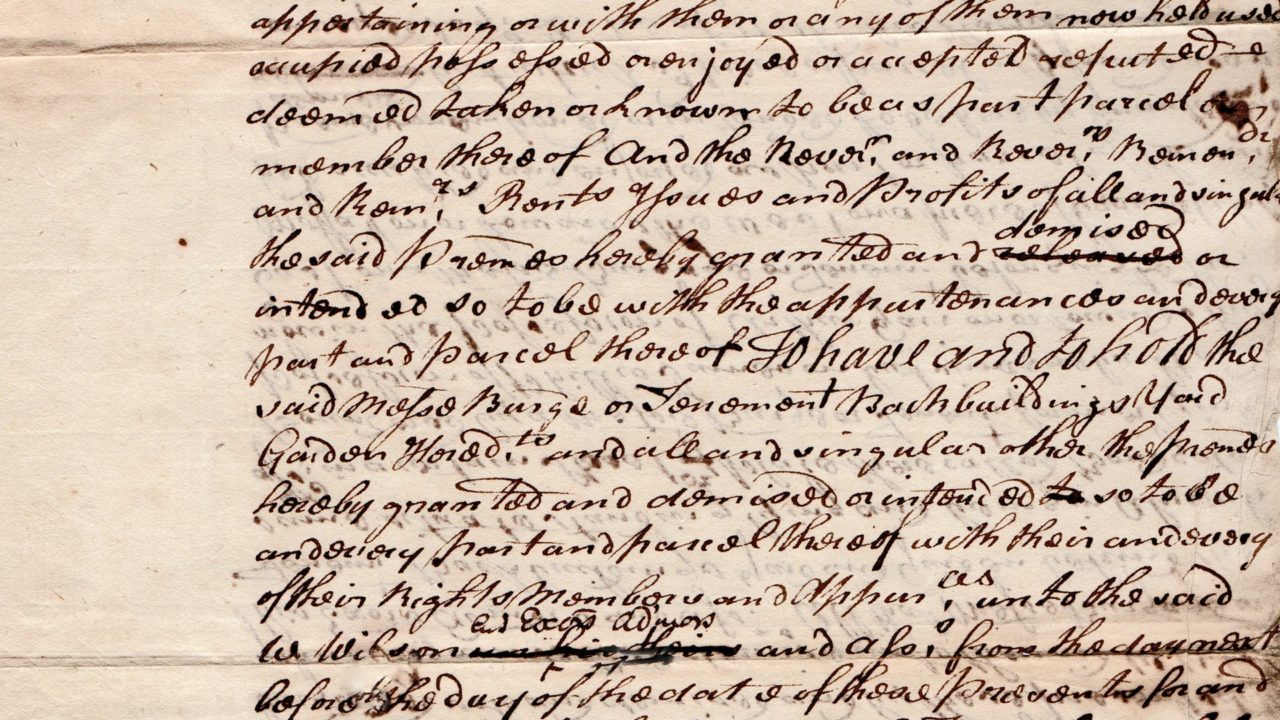 appertaining or with them or any of them now held used
occupied possessed or enjoyed or accepted reputed
deemed taken or known to be as part parcel or
member thereof And the Rever,n and Rever,ns Remen,dr
and Rem,rs Rents Issues and Profits of all and singular
the said Prem̄es hereby granted and demised released or
intended so to be with the appurtenances and every
part and parcel thereof To have and to hold the
said Messe Burge or Tenement Backbuildings Yard
Garden Hered,ts and all and singular other the prem̄es
hereby granted and demised or intended to so to be
and every part and parcel thereof with their and every
of their Rights Members and Appur,ces unto the said
Exōrs Admors
W Wilson and Ass,s from the day next
before the day of the date of these Presents for and